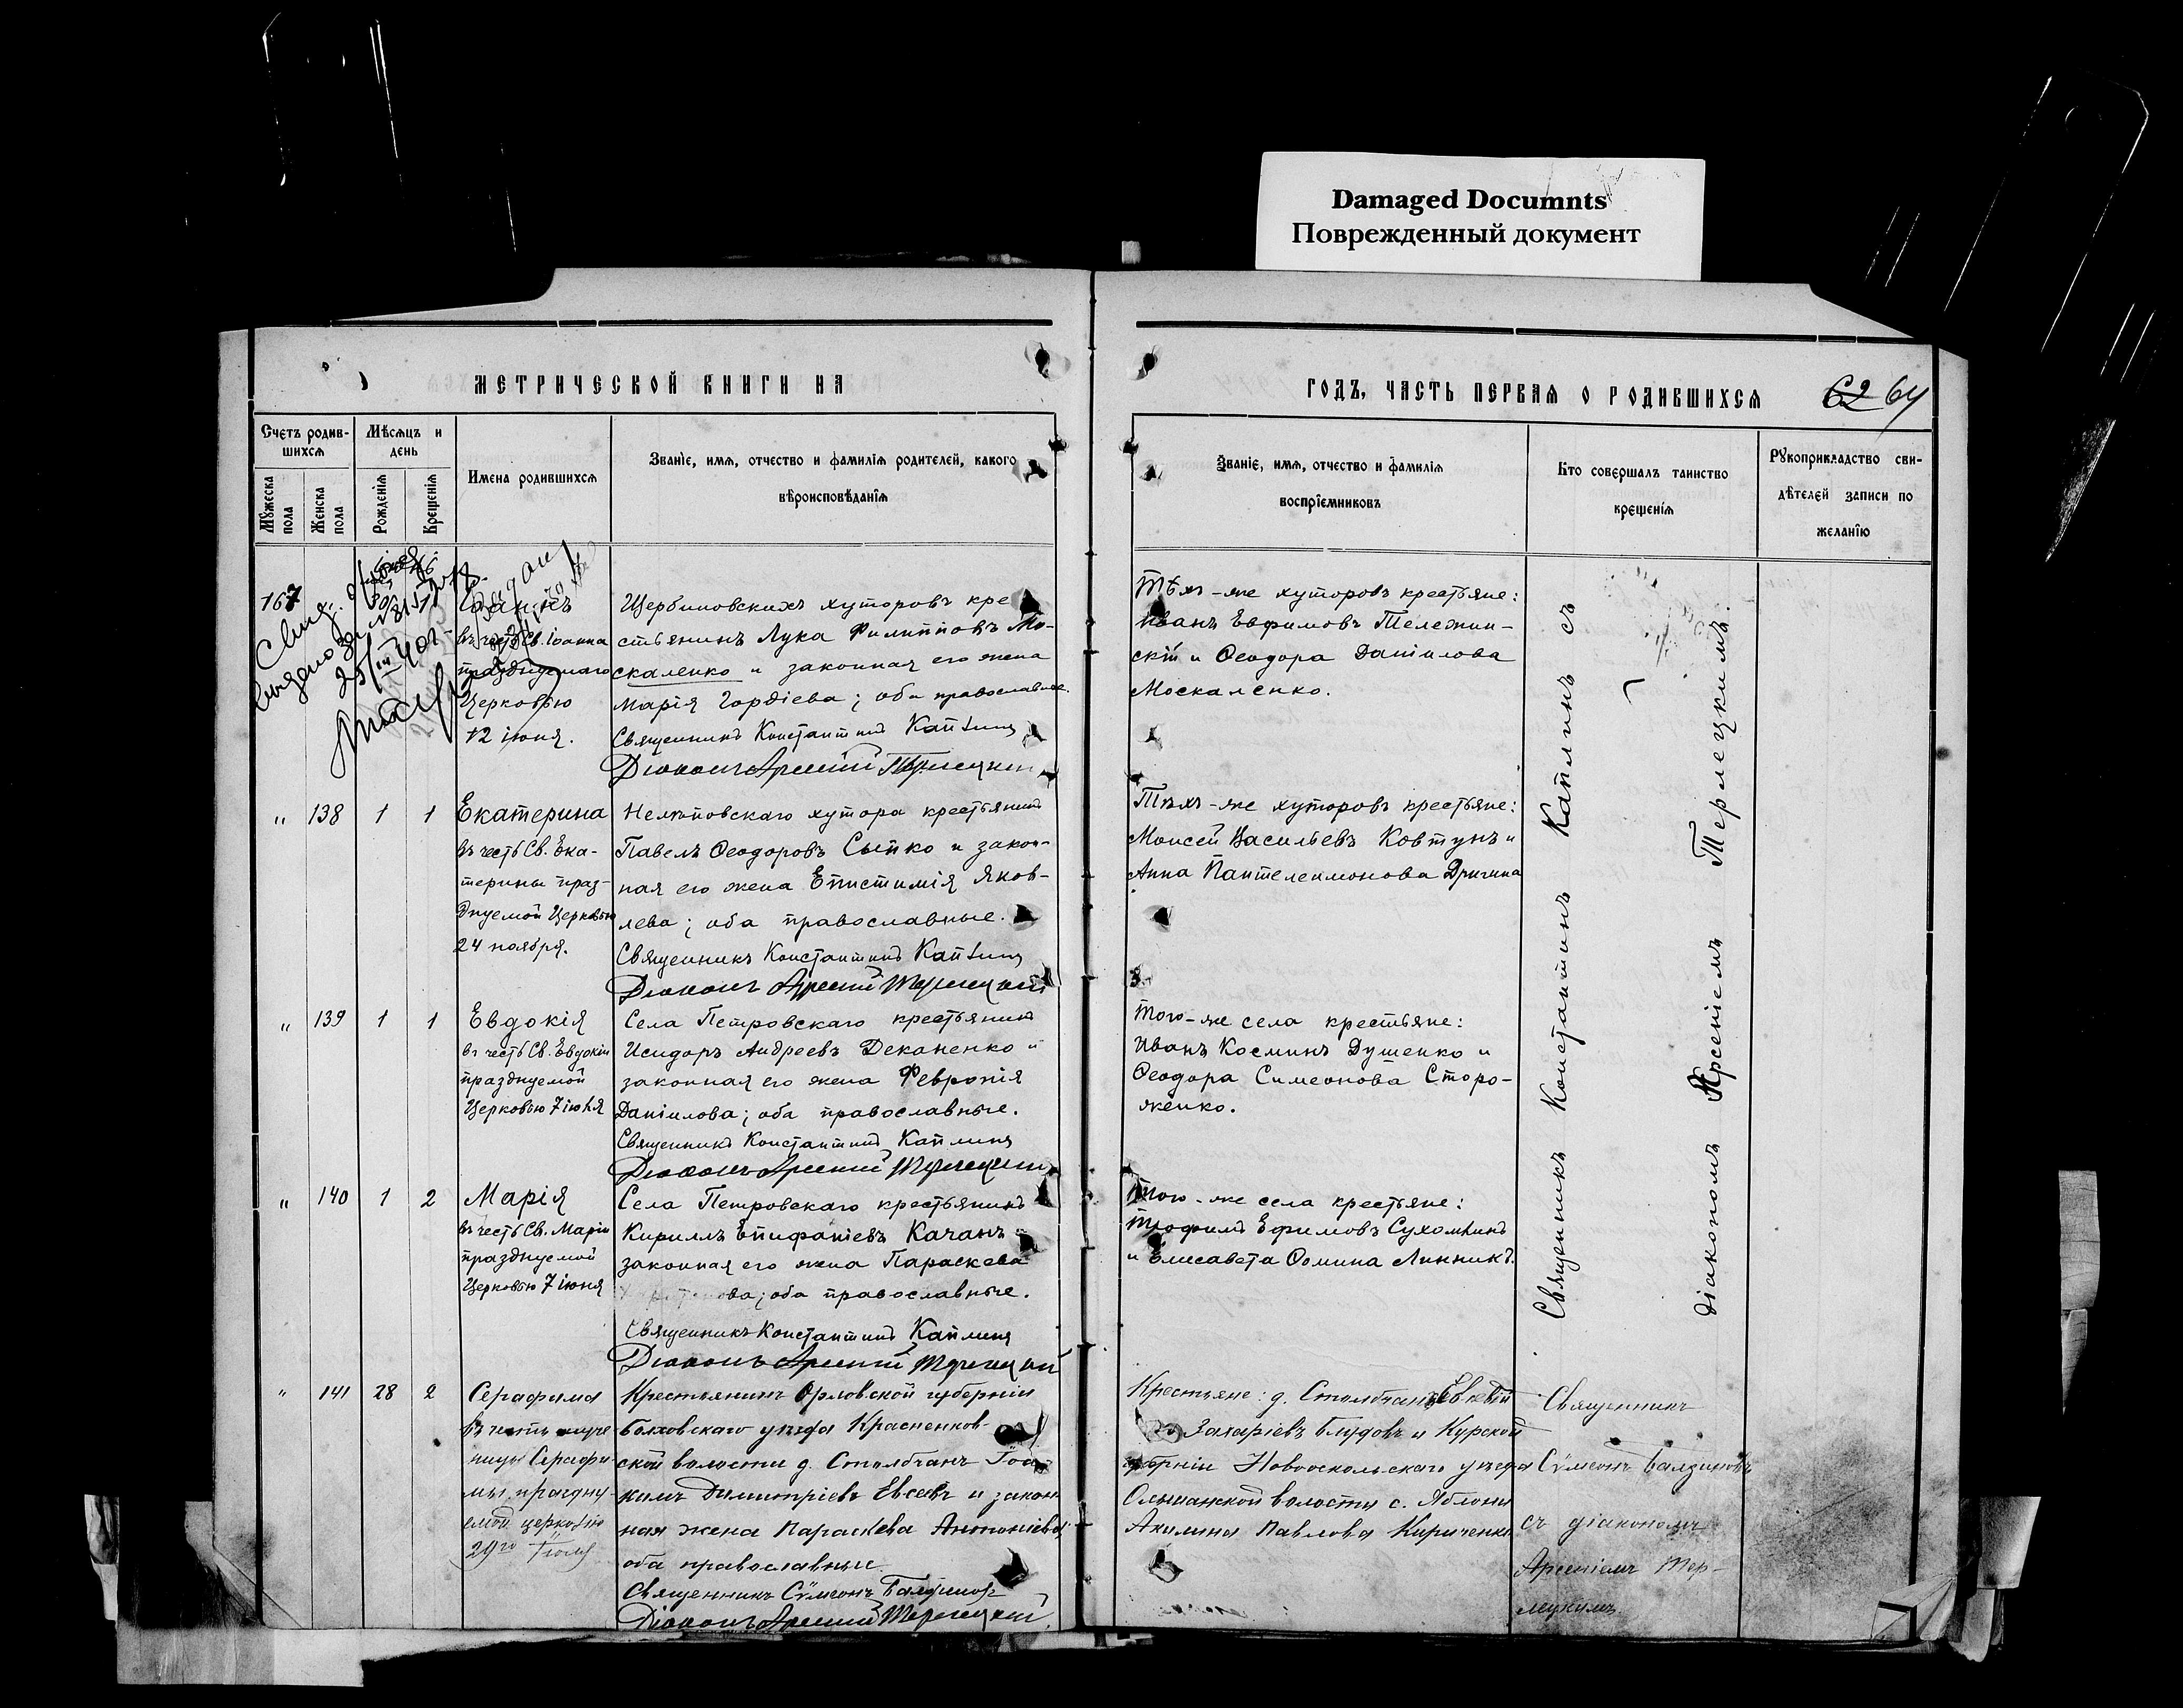 Damaged Documnts
Поврежденный документ
МЕТРИЧЕСКОЙ КНИГИ НА
Счетъ родив-
шихся
Мѣсяцъ и
день
Мужеска
пола
Женска
пола
Рожденія
Крещенія
Имена родившихся
Званіе, имя, отчество и фамилія родителей, какого
вѣроисповѣданія
167
въ честь Св. Іоанна
празднуемаго
Церковью
12 іюня.
Щербиновскихъ хуторовъ кре-
стьянинъ Лука Филипповъ Мо-
скаленко и законная его жена
Марія Гордіева; оба православные.
Священникъ Константинъ Каплинъ
Діаконъ Арсеній Терлецкій
" 138 1 1 Екатерина
въ честь Св. Ека-
терины праз-
днуемой Церковью
24 ноября.
хутора крестьянинъ
Павелъ Ѳеодоровъ Сыпко и закон-
ная его жена Епистимія Яков-
лева; оба православные.
Священникъ Константинъ Каплинъ
Діаконъ Арсеній Терлецкій
" 139 1 1 Евдокія
въ честь Св. Евдокіи
празднуемой
Церковью 7 іюня
Села Петровскаго крестьянинъ
Исидоръ Андреевъ Деканенко и
законная его жена Февронія
Даніилова; оба православные.
Священникъ Константинъ Каплинъ
Діаконъ Арсеній Терлецкій
" 140 1 2 Марія
въ честь Св. Маріи
празднуемой
Церковью 7 іюня
Села Петровскаго крестьянинъ
Кириллъ Епифаніевъ Качанъ и
законная его жена Параскева
оба православные.
Священникъ Константинъ Каплинъ
Діаконъ Арсеній Терлецкій
" 141 28 2 Серафима
въ честь муче
ницы Серафи
мы, праздну-
емой церковію
29го Іюля
Крестьянинъ Орловской губерніи
Болховскаго уѣзда Красненков-
ской волости д. Столбчанъ Іоа-
кимъ Димитріевъ Евсѣевъ и закон
ная жена Параскева Антоніева
оба православные
Священникъ Сѵмеонъ
Діаконъ Арсеній Терлецкій
ГОДЪ, ЧАСТЬ ПЕРВАЯ О РОДИВШИХСЯ
62 64
Званіе, имя, отчество и фамилія
воспріемниковъ
Кто совершалъ таинство
крещенія
Рукоприкладство сви-
дѣтелей записи по
желанію
Тѣхъ-же хуторовъ крестьяне:
Иванъ Евфимовъ Тележин-
скій и Ѳеодора Даніилова
Москаленко.
Тѣхъ-же хуторовъ крестьяне:
Моисей Васильевъ Ковтунъ и
Анна Пантелеимонова Дригина
Того-же села крестьяне:
Иванъ Косминъ Душенко и
Ѳеодора Симеонова Сторо-
женко.
Того-же села крестьяне:
Трофимъ Ефимовъ Сухомлинъ
и Елисавета Ѳомина Линникъ.
Крестьяне: д. Столбчанъ
Захаріевъ Блудовъ и Курской
губерніи Новооскольскаго уѣзда
Ольшанской волости с. Яблони
Акилина Павлова Кириченко
Священникъ Константинъ Каплинъ съ
діакономъ Арсеніемъ Терлецкимъ.
Священникъ
Сѵмеонъ
съ діакономъ
Арсеніемъ Тер-
лецкимъ